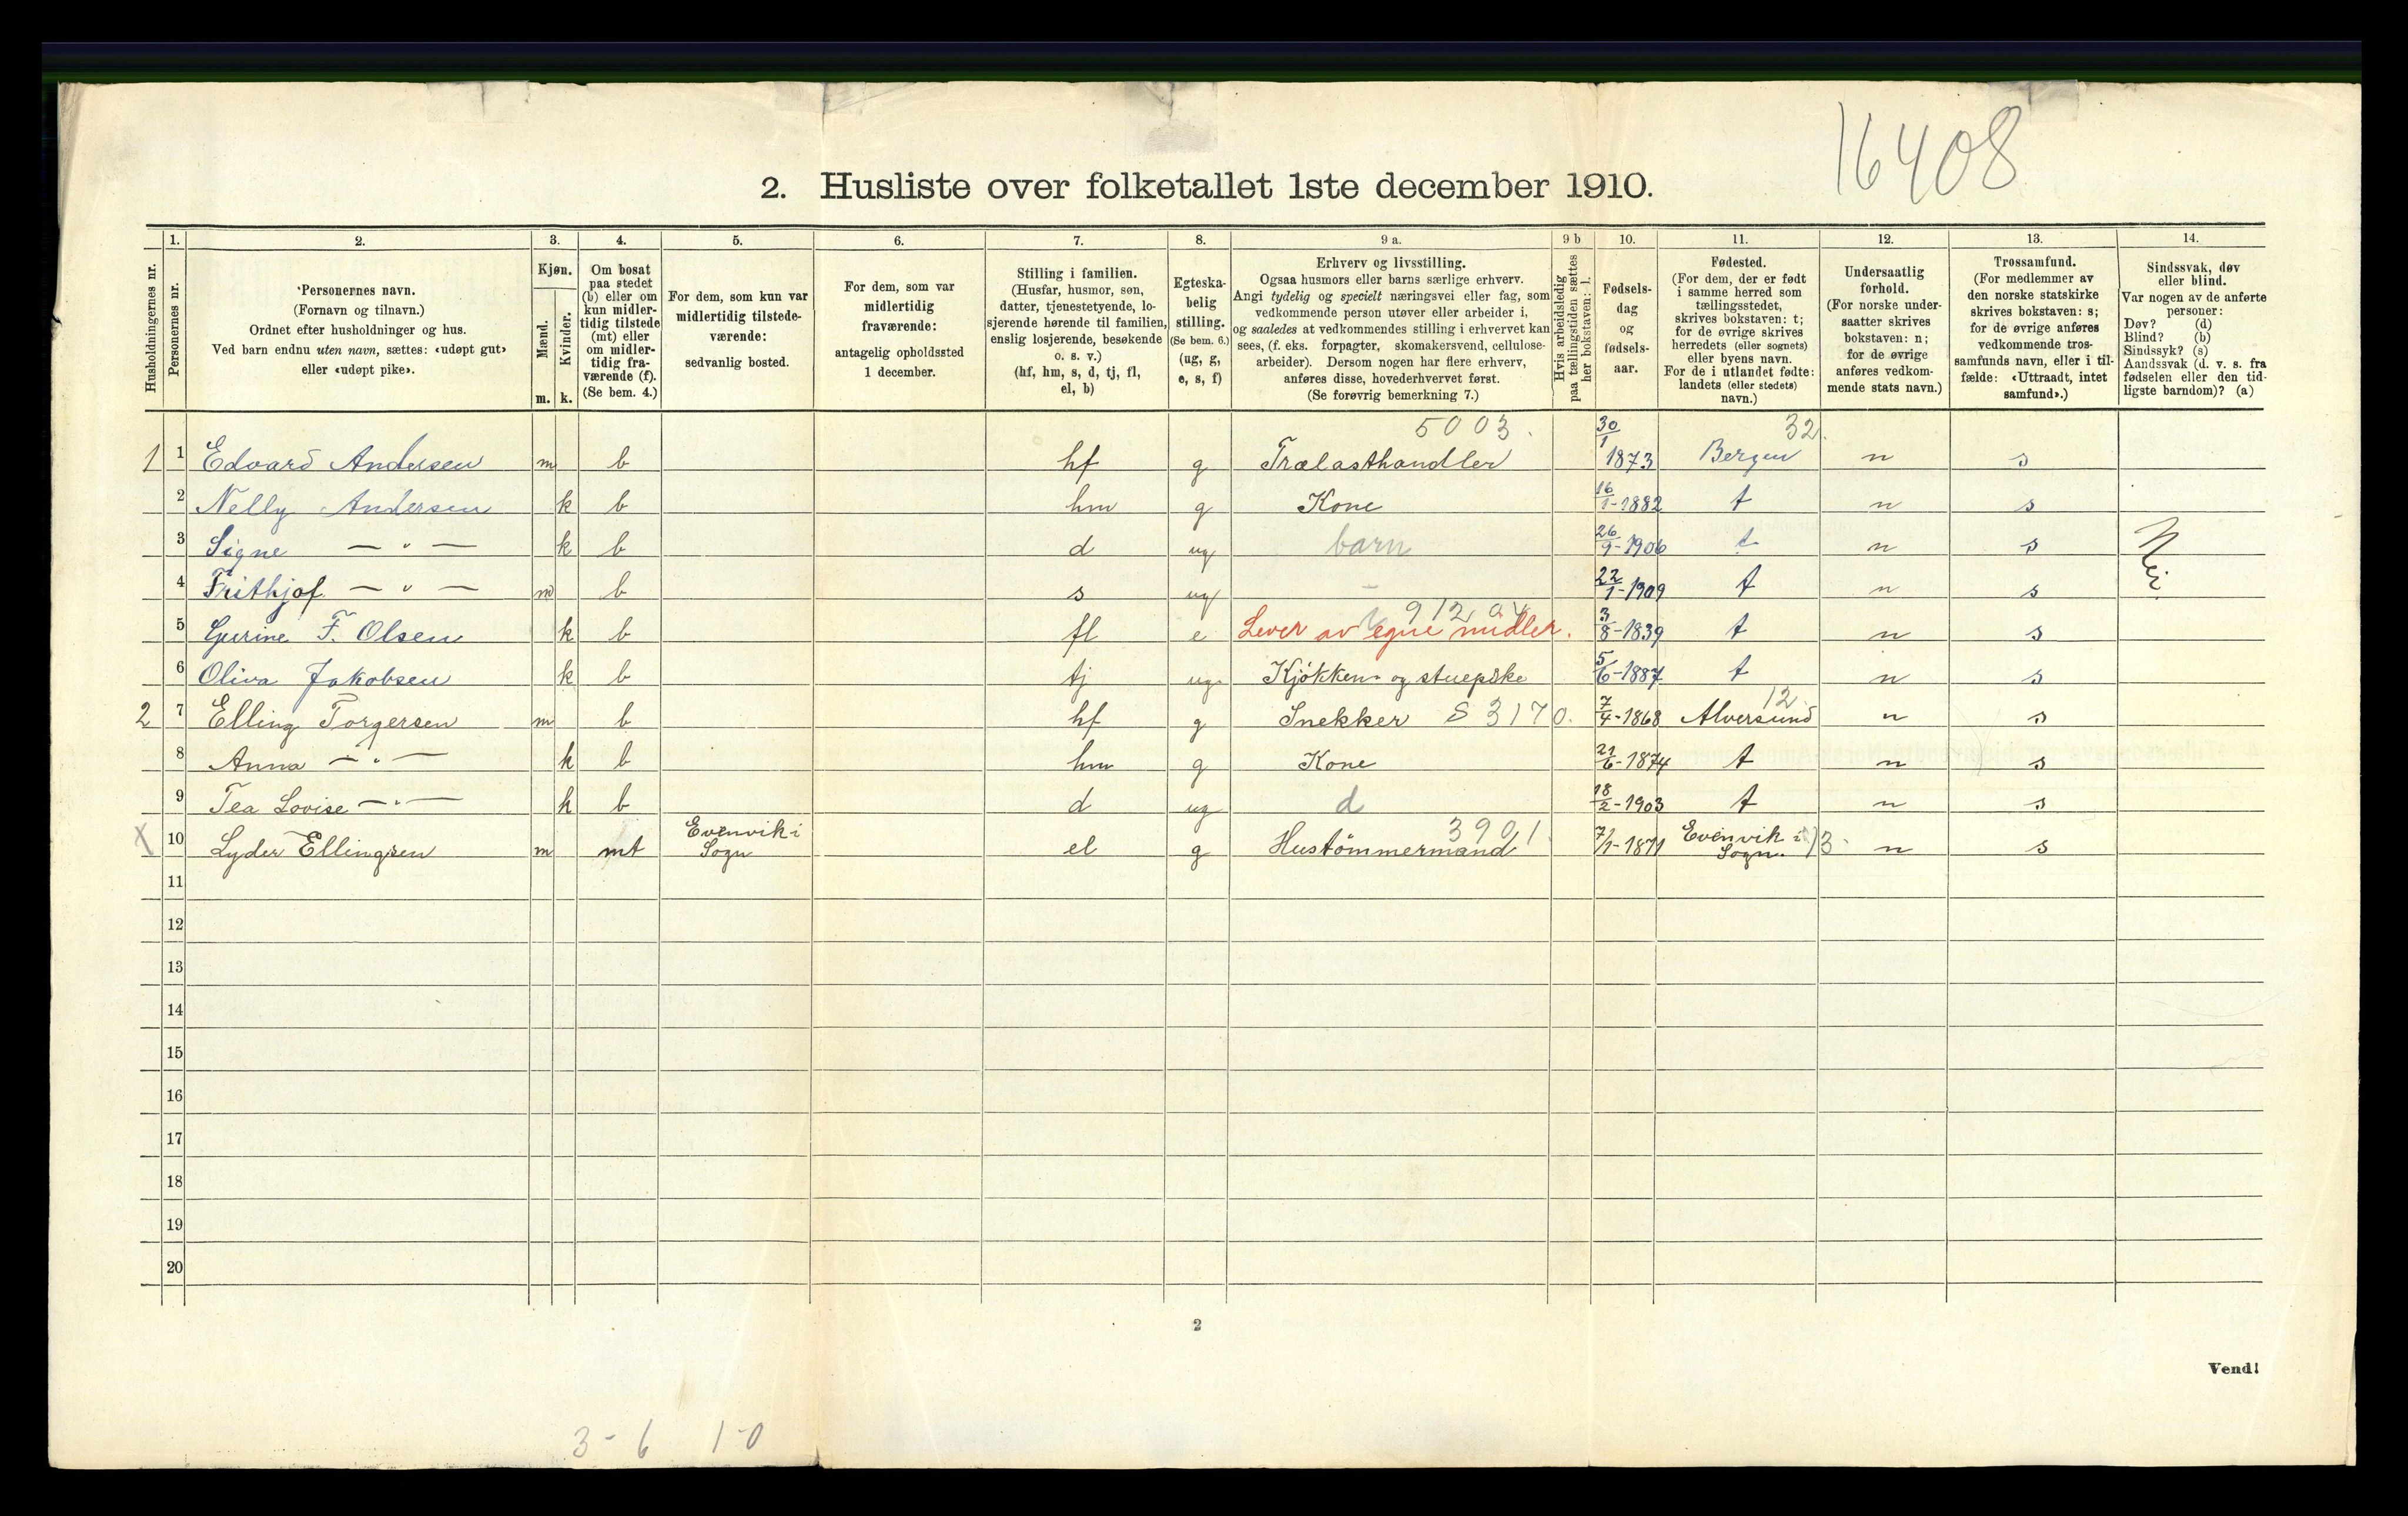 16408
2. Husliste over folketallet 1ste december 1910.
Husholdningernes nr.
1.
Personernes nr.
2.
Personernes navn.
(Fornavn og tilnavn.)
Ordnet efter husholdninger og hus.
Ved barn endnu uten navn, sættes: «udøpt gut»
eller «udøpt pike».
3.
Kjøn.
Mænd.
Kvinder.
m. k.
4.
Om bosat
paa stedet
(b) eller om
kun midler-
tidig tilstede
(mt) eller
om midler-
tidig fra-
værende (f).
(Se bem. 4.)
5.
For dem, som kun var
midlertidig tilstede-
værende:
sedvanlig bosted.
6.
For dem, som var
midlertidig
fraværende:
antagelig opholdssted
1 december.
7.
Stilling i familien.
(Husfar, husmor, søn,
datter, tjenestetyende, lo-
sjerende hørende til familien,
enslig losjerende, besøkende
o. s. v.)
(hf, hm, s, d, tj, fl,
el, b)
8.
Egteska-
belig
stilling.
(Se bem. 6.)
(ug, g,
e, s, f)
9 a.
Erhverv og livsstilling.
Ogsaa husmors eller barns særlige erhverv.
Angi tydelig og specielt næringsvei eller fag, som
vedkommende person utøver eller arbeider i,
og saaledes at vedkommendes stilling i erhvervet kan
sees, (f. eks. forpagter, skomakersvend, cellulose-
arbeider). Dersom nogen har flere erhverv,
anføres disse, hovederhvervet først.
(Se forøvrig bemerkning 7.)
9 b
Hvis arbeidsledig
paa tællingstiden sættes
her bokstaven: l.
10.
Fødsels-
dag
og
fødsels-
aar.
11.
Fødested.
(For dem, der er født
i samme herred som
tællingsstedet,
skrives bokstaven: t;
for de øvrige skrives
herredets (eller sognets)
eller byens navn.
For de i utlandet fødte:
landets (eller stedets)
navn.)
12.
Undersaatlig
forhold.
(For norske under-
saatter skrives
bokstaven: n;
for de øvrige
anføres vedkom-
mende stats navn.)
13.
Trossamfund.
(For medlemmer av
den norske statskirke
skrives bokstaven: s;
for de øvrige anføres
vedkommende tros-
samfunds navn, eller i til-
fælde: «Uttraadt, intet
samfund».)
14.
Sindssvak, døv
eller blind.
Var nogen av de anførte
personer:
Døv? (d)
Blind? (b)
Sindssyk? (s)
Aandssvak (d. v. s. fra
fødselen eller den tid-
ligste barndom)? (a)
5003. 32.
1 1 Edvard Andersen m b hf g Trælasthandler 30/1 1873 Bergen n s
2 Nelly Andersen k b hm g Kone 16/1-1882 t n s
3 Signe — " — k b d ug barn 26/9-1906 t n s Nei.
4 Frithjof — " — m b s ug - 22/1-1909 t n s
912
5 Gurine F. Olsen k b fl e Lever av egne midler. 3/8-1839 t n s
6 Oliva Jakobsen k b tj ug Kjøkken- og stuepike 5/6-1887 t n s
2 7 Elling Torgersen m b hf g Snekker S 3170. 7/4-1868 Alversund 12 n s
8 Anna — " — k b hm g Kone 21/6-1874 t n s
9 Tea Lovise — " — k b d ug d 18/2-1903 t n s
X 10 Lyder Ellingsen m mt Evenvik i Sogn el g Hustømmermand 3901. 7/1-1871 Evenvik i Sogn. 13 n s
11
12
13
14
15
16
17
18
19
20
2
Vend!
3-6 1-0